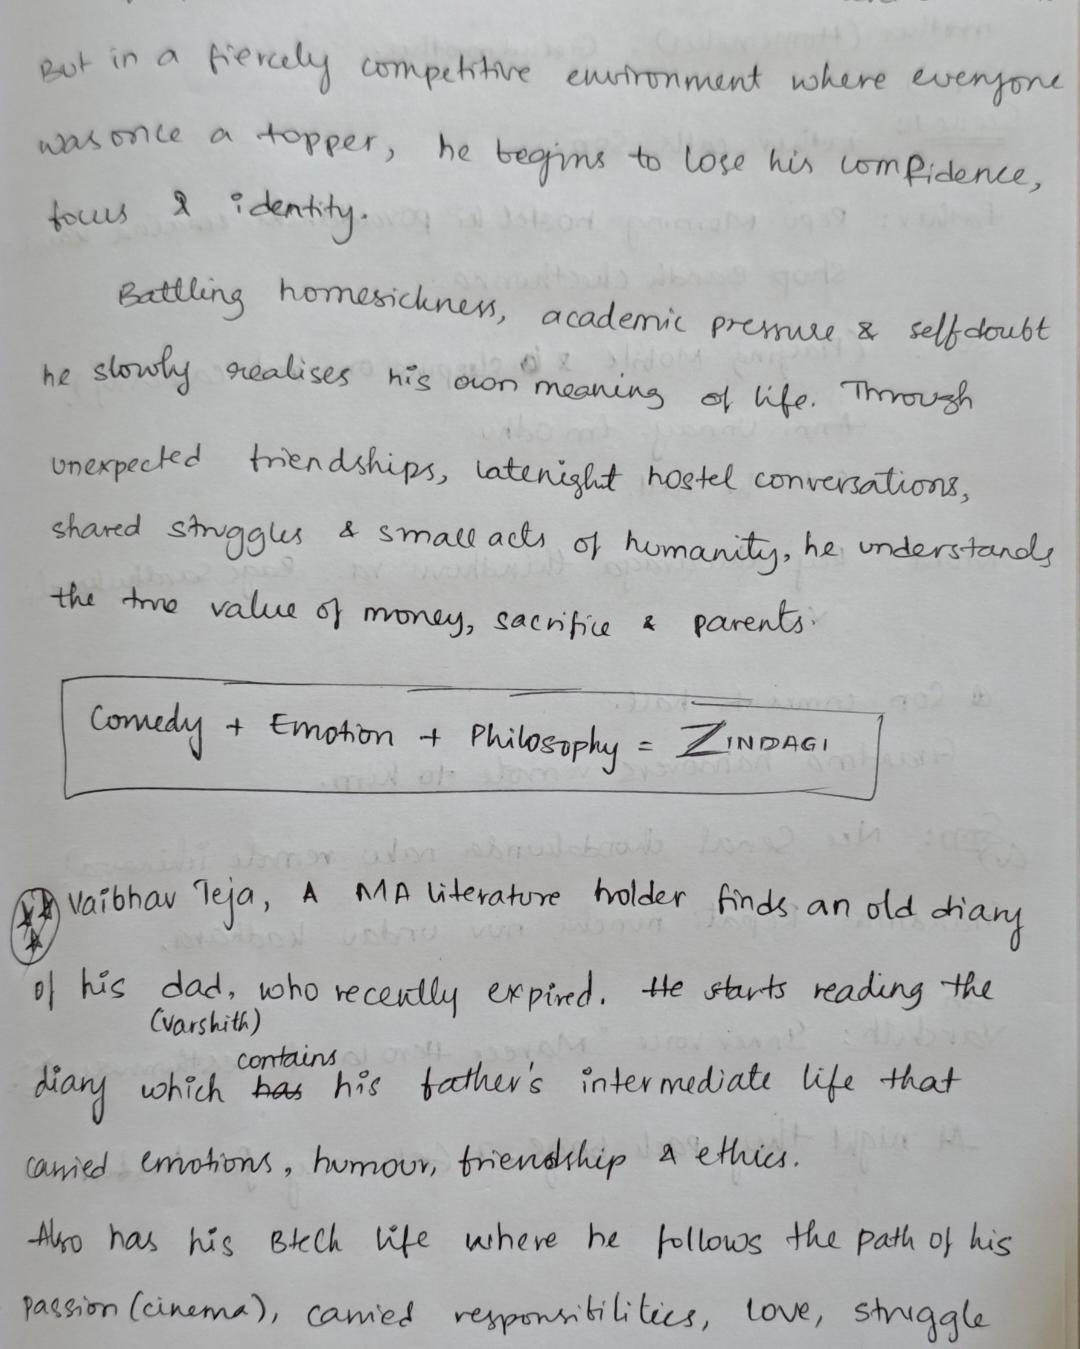 But in a fiercely competitive environment where everyone
was once a topper, he begins to lose his confidence,
focus & identity.
Battling homesickness, academic pressure & self doubt
he slowly realises his own meaning of life. Through
unexpected friendships, latenight hostel conversations,
shared struggles & small acts of humanity, he understands
the true value of money, sacrifice & parents.
Comedy + Emotion + Philosophy = ZINDAGI
Vaibhav Teja, A MA literature holder finds an old diary
of his dad, who recently expired. He starts reading the
(Varshith)
contains
diary which has his father's intermediate life that
carried emotions, humour, friendship & ethics.
Also has his Btech life where he follows the path of his
passion (cinema), carried responsibilities, love, struggle